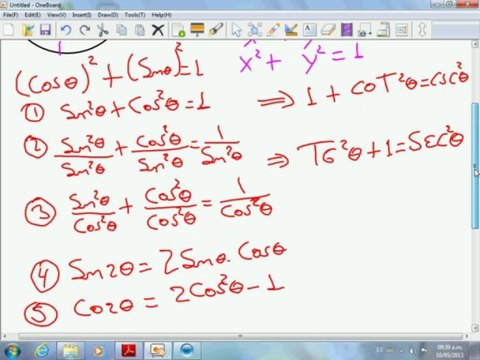 Untitled - OneBoard
File Edit View Insert Draw Format Tools Help
x² + y² = 1
(Cosθ)² + (Senθ)² = 1
① Sen²θ + Cos²θ = 1 ⇒ 1 + COT²θ = CSC²θ
② Sen²θ/Sen²θ + Cos²θ/Sen²θ = 1/Sen²θ ⇒ TG²θ + 1 = SEC²θ
③ Sen²θ/Cos²θ + Cos²θ/Cos²θ = 1/Cos²θ
④ Sen2θ = 2Senθ . Cosθ
⑤ Co2θ = 2Cos²θ - 1
ES
09:39 a.m.
10/05/2013